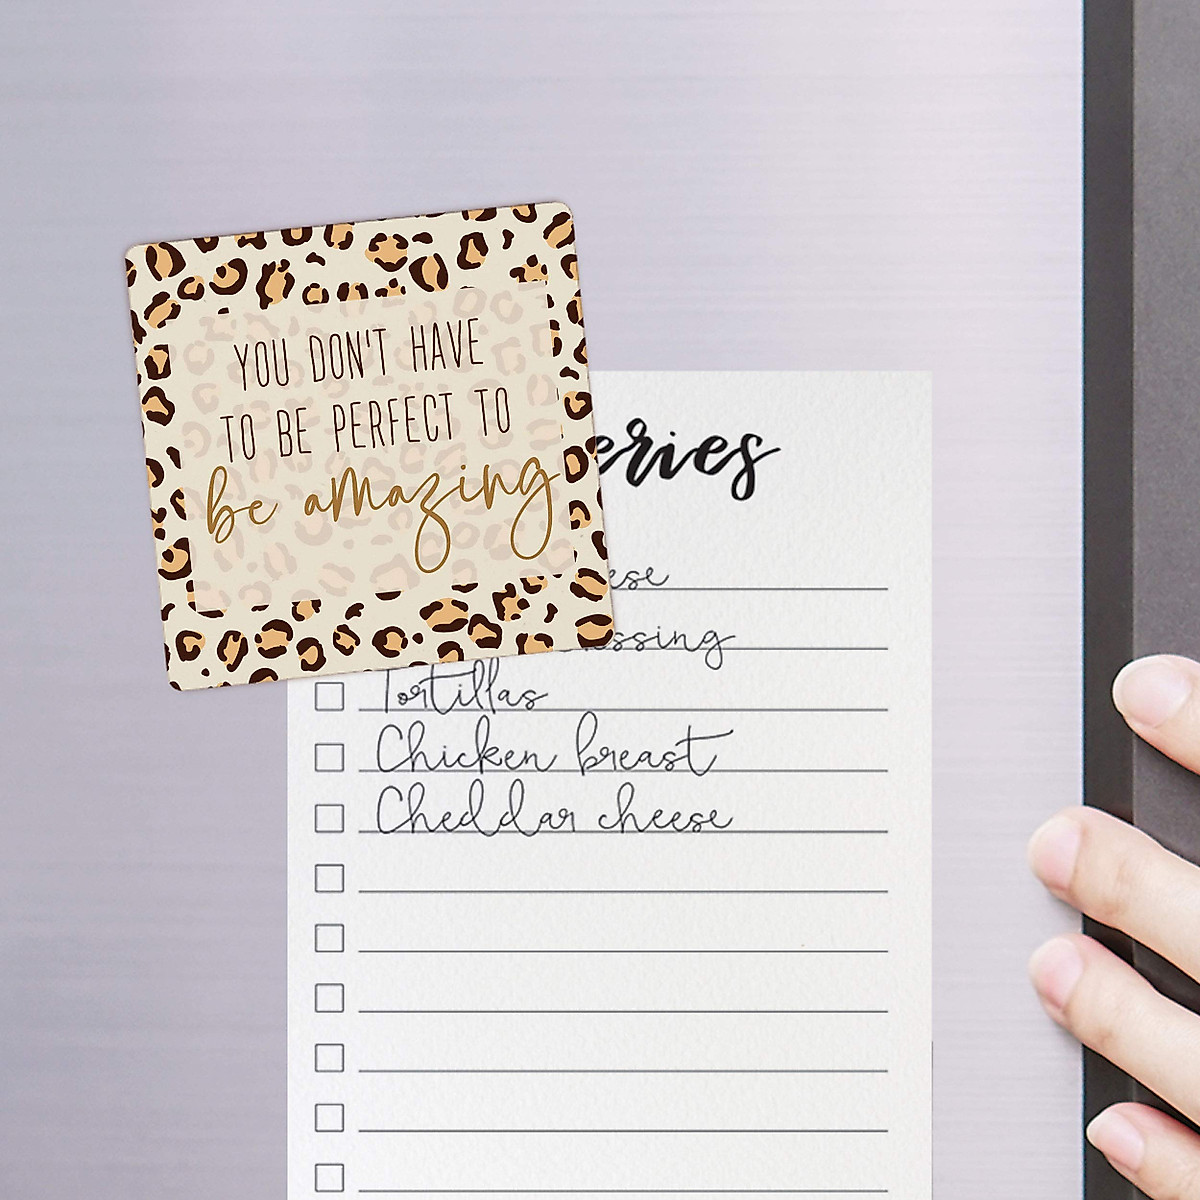 YOU DON'T HAVE
TO BE PERFECT TO
be amazing
eries
ese
ssing
Tortillas
Chicken breast
Cheddar cheese